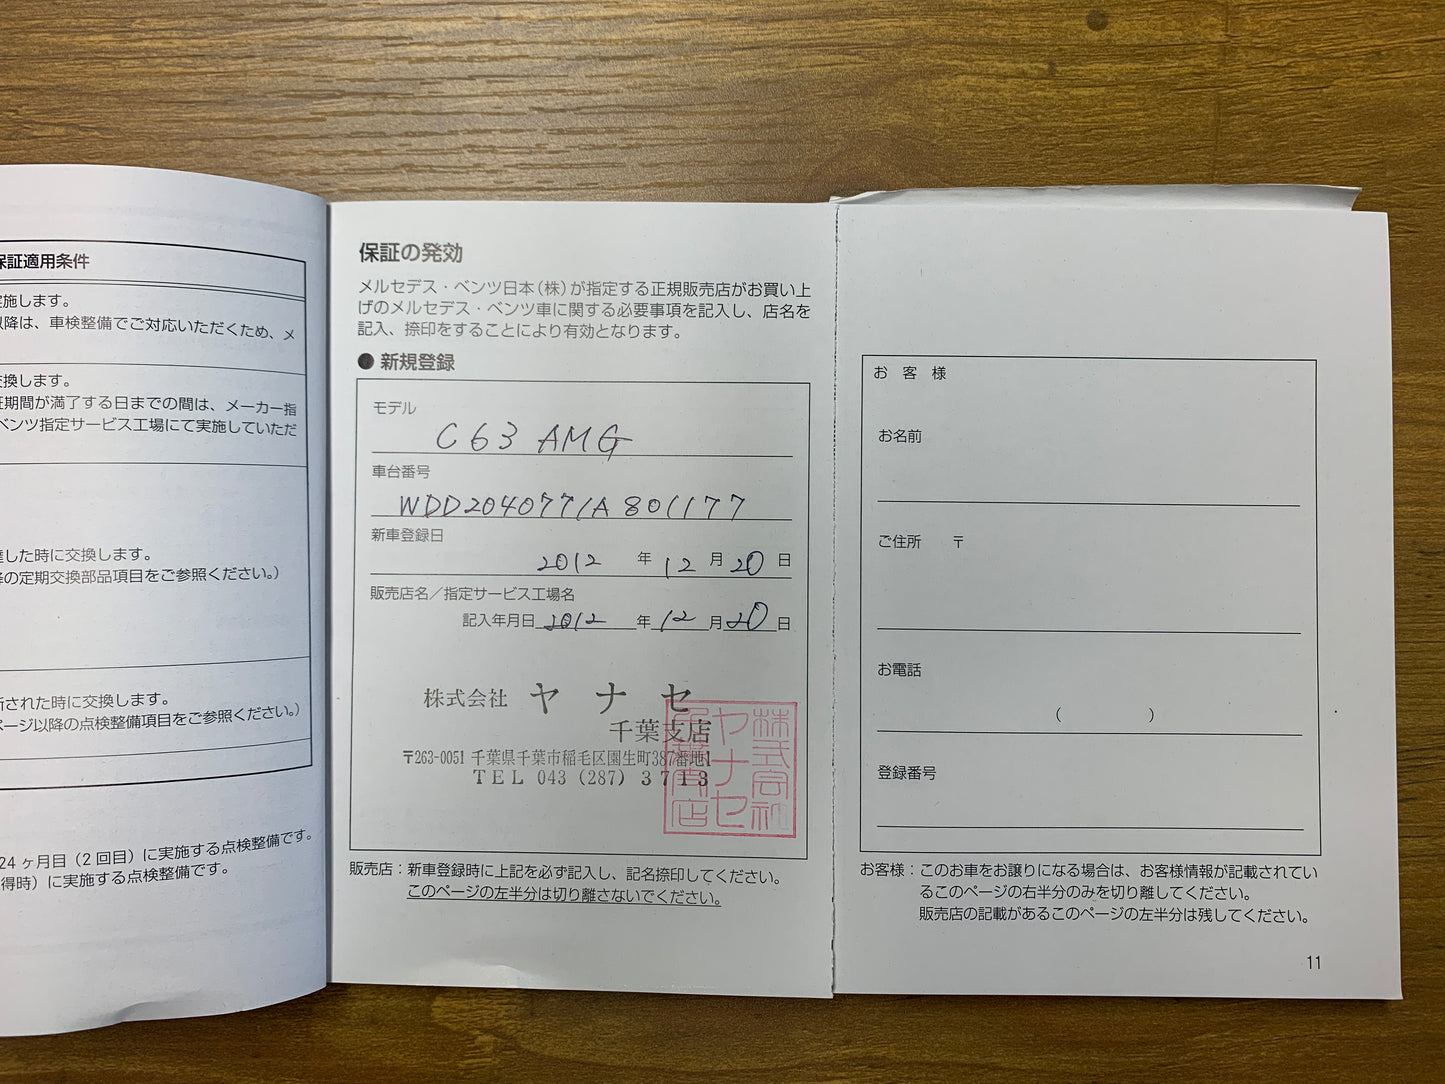 保証適用条件
実施します。
以降は、車検整備でご対応いただくため、メ
交換します。
証期間が満了する日までの間は、メーカー指
ベンツ指定サービス工場にて実施していただ
達した時に交換します。
降の定期交換部品項目をご参照ください。）
断された時に交換します。
ページ以降の点検整備項目をご参照ください。）
24ヶ月目（2回目）に実施する点検整備です。
得時）に実施する点検整備です。
保証の発効
メルセデス・ベンツ日本（株）が指定する正規販売店がお買い上
げのメルセデス・ベンツ車に関する必要事項を記入し、店名を
記入、捺印をすることにより有効となります。
● 新規登録
モデル
C63 AMG
車台番号
WDD2040771A801177
新車登録日
2012 年 12 月 20 日
販売店名／指定サービス工場名
記入年月日 2012 年 12 月 20 日
株式会社 ヤナセ
千葉支店
〒263-0051 千葉県千葉市稲毛区園生町387番地1
TEL 043（287）3713
株式会社
ヤナセ
千葉支店
販売店：新車登録時に上記を必ず記入し、記名捺印してください。
このページの左半分は切り離さないでください。
お客様
お名前
ご住所 〒
お電話
（ ）
登録番号
お客様：このお車をお譲りになる場合は、お客様情報が記載されてい
るこのページの右半分のみを切り離してください。
販売店の記載があるこのページの左半分は残してください。
11